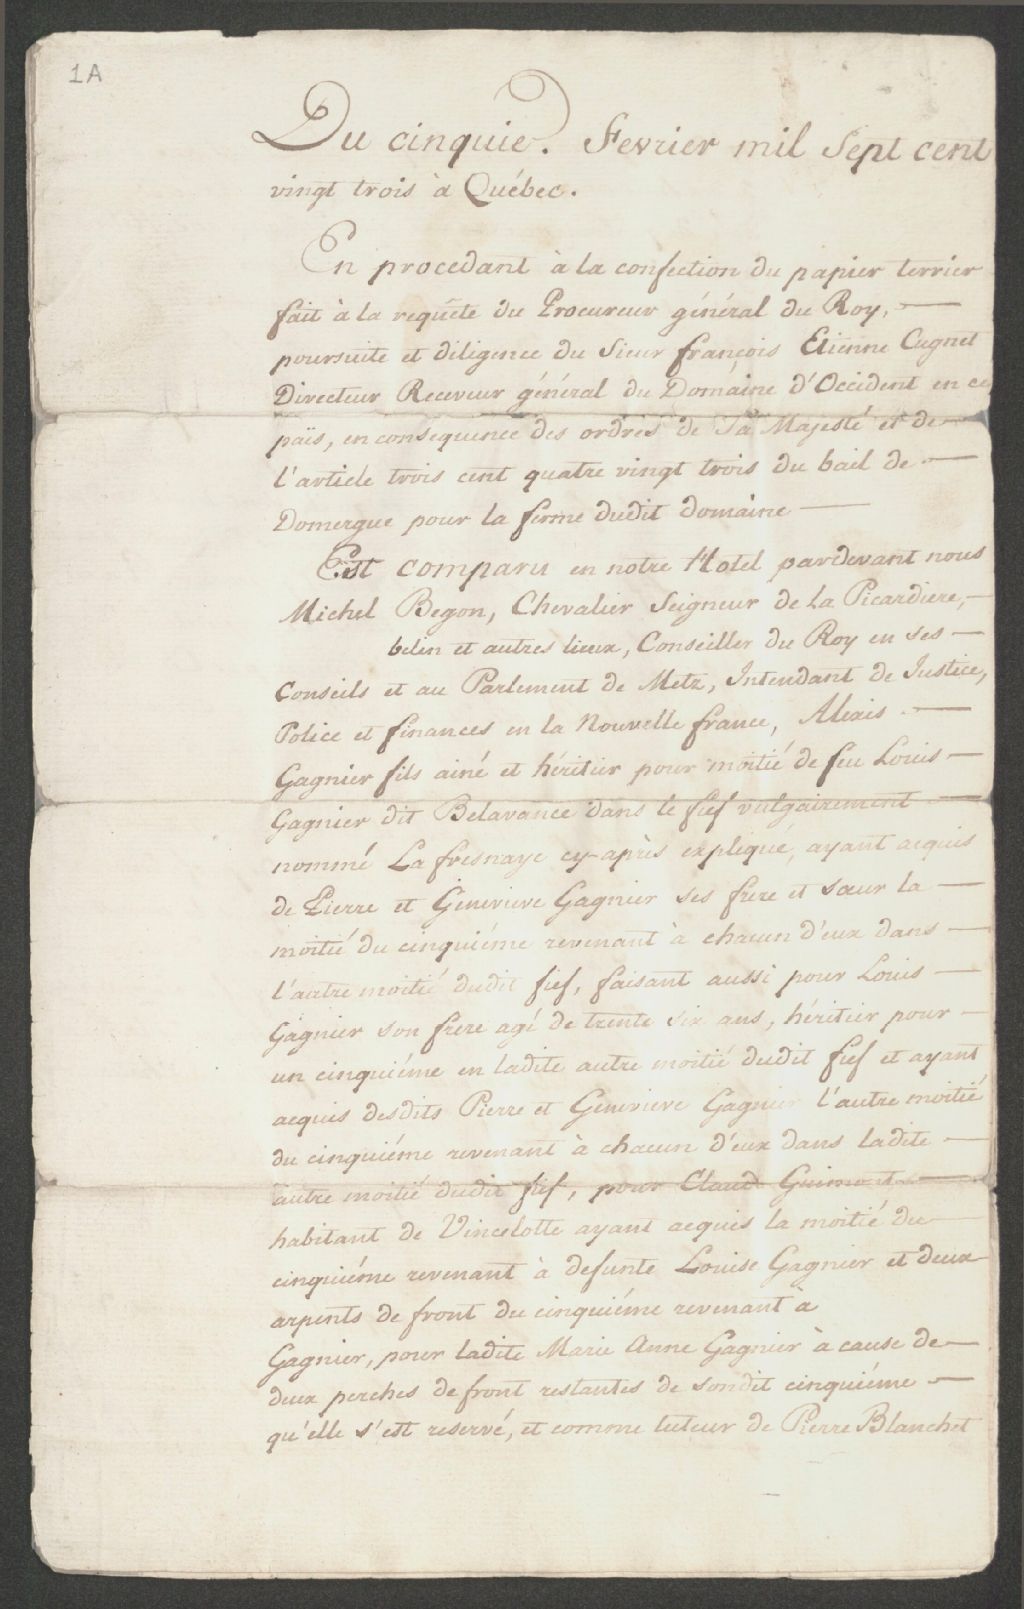 1A
Du cinquie. Fevrier mil Sept cent
vingt trois à Québec.
En procedant à la confection du papier terrier
fait à la requête du Procureur général du Roy,
poursuite et diligence du Sieur françois Etienne Cugnet
Directeur Receveur général du Domaine d'Occident en ce
païs, en consequence des ordres de Sa Majesté et de
l'article trois cent quatre vingt trois du bail de
Domergue pour la ferme dudit domaine
Est comparu en notre Hotel pardevant nous
Michel Begon, Chevalier Seigneur de la Picardiere,
belin et autres lieux, Conseiller du Roy en ses
Conseils et au Parlement de Metz, Intendant de Justice,
Police et finances en la Nouvelle france, Alexis
Gagnier fils ainé et héritier pour moitié de feu Louis
Gagnier dit Belavance dans le fief vulgairement
nommé La fresnaye cy-après expliqué, ayant acquis
de Pierre et Genevieve Gagnier ses frere et sœur la
moitié du cinquiéme revenant à chacun d'eux dans
l'autre moitié dudit fief, faisant aussi pour Louis
Gagnier son frere agé de trente six ans, héritier pour
un cinquiéme en ladite autre moitié dudit fief et ayant
acquis desdits Pierre et Genevieve Gagnier l'autre moitié
du cinquiéme revenant à chacun d'eux dans ladite
autre moitié dudit fief, pour Claud Guimont
habitant de Vincelotte ayant acquis la moitié du
cinquiéme revenant à defunte Louise Gagnier et deux
arpents de front du cinquiéme revenant à
Gagnier, pour ladite Marie Anne Gagnier à cause de
deux perches de front restantes de sondit cinquiéme
qu'elle s'est reservé, et comme tuteur de Pierre Blanchet